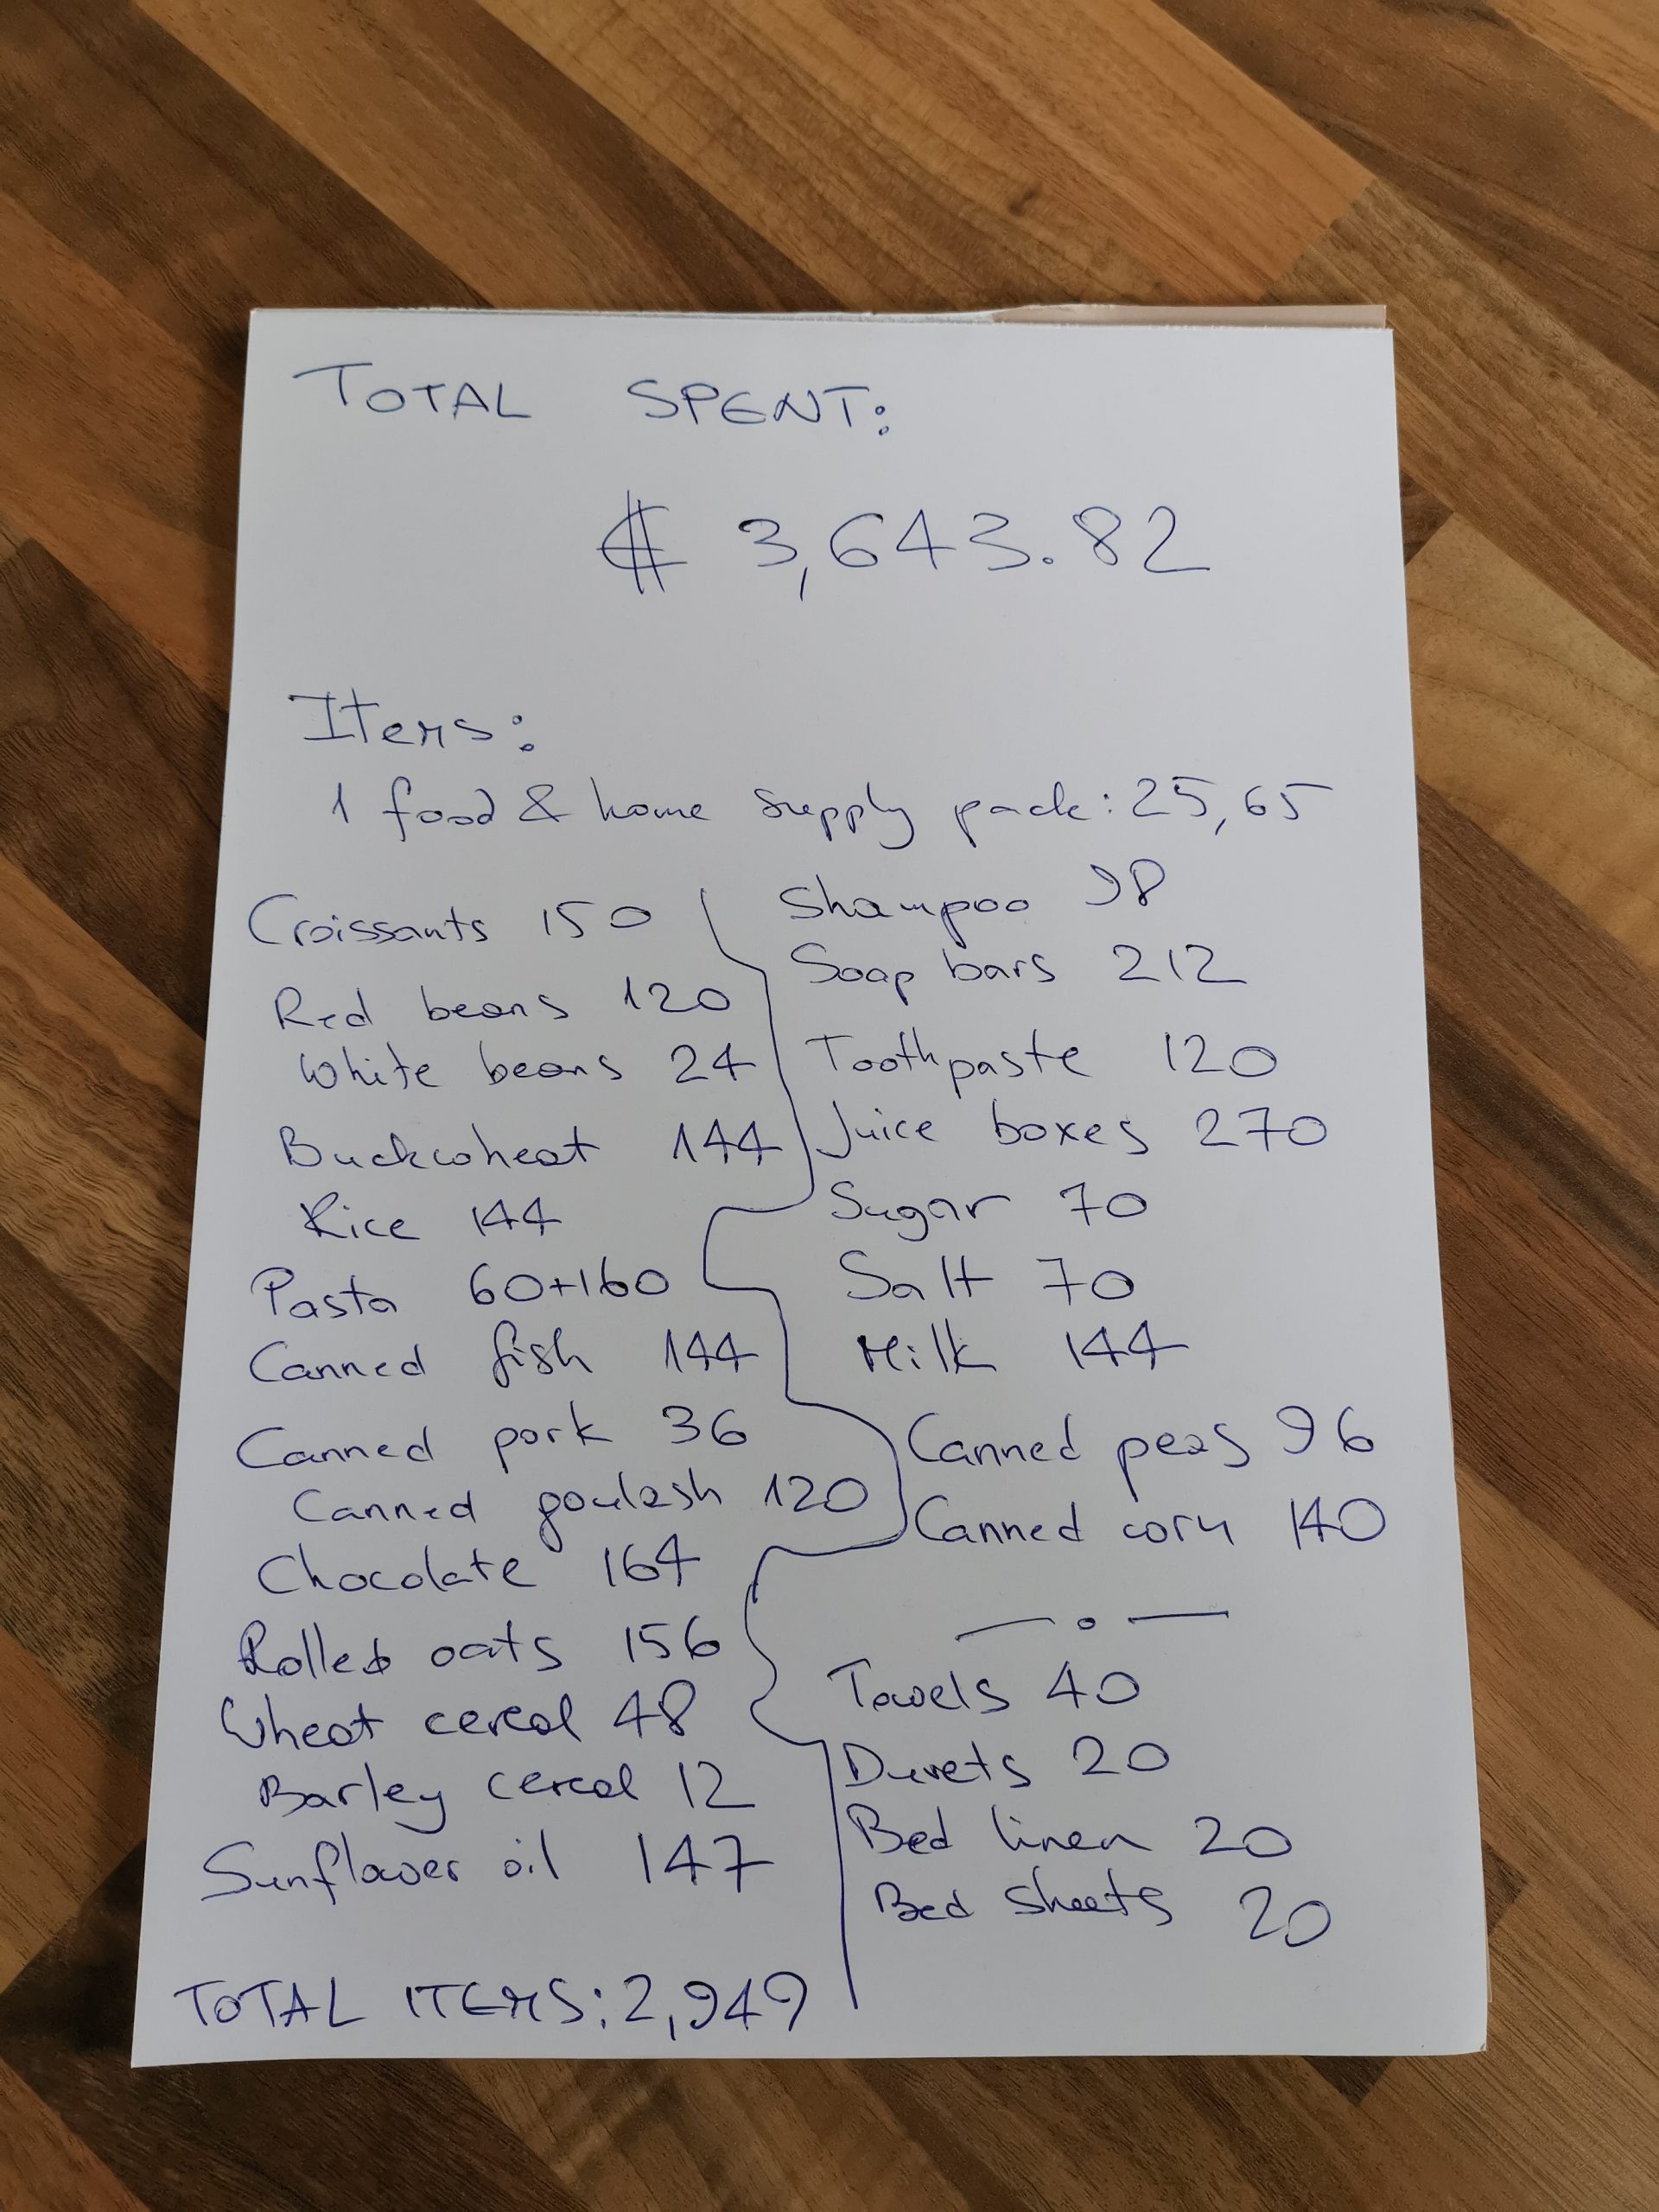 TOTAL SPENT:
₡ 3,643.82
Items:
1 food & home supply pack: 25,65
Croissants 150
Red beans 120
White beans 24
Buckwheat 144
Rice 144
Pasta 60+160
Canned fish 144
Canned pork 36
Canned goulash 120
Chocolate 164
Rolled oats 156
Wheat cereal 48
Barley cereal 12
Sunflower oil 147
TOTAL ITEMS: 2,949
Shampoo 98
Soap bars 212
Toothpaste 120
Juice boxes 270
Sugar 70
Salt 70
Milk 144
Canned peas 96
Canned corn 140
Towels 40
Duvets 20
Bed linen 20
Bed sheets 20